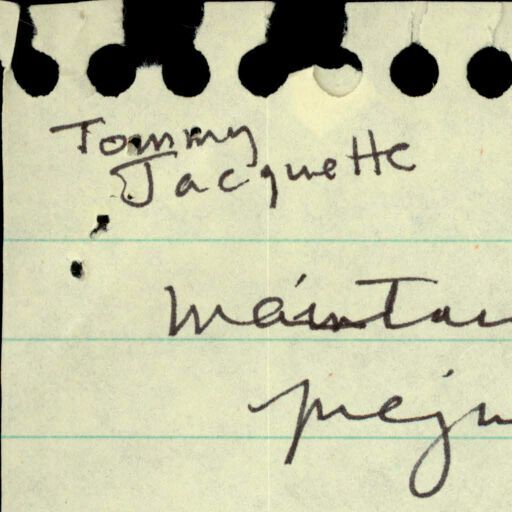 Tommy
Jacquette
maintai
preju